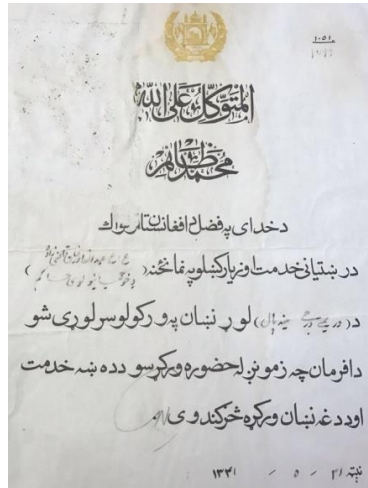 ۱۰۵۱
المتوکل علی الله
محمد ظاهر
د خدای په فضل د افغانستان ټولواک
د رښتیانی خدمت او زیار کښلو په نمانځنه (
د (دریمه درجه مینه پال) لوړ نښان په ورکولو سرلوړی شو
دا فرمان چه زمونږ له حضوره ورکړ سو دده ښه خدمت
او د دغه نښان ورکړه څرګندوی
نېټه ۲۱ / ۵ / ۱۳۴۱